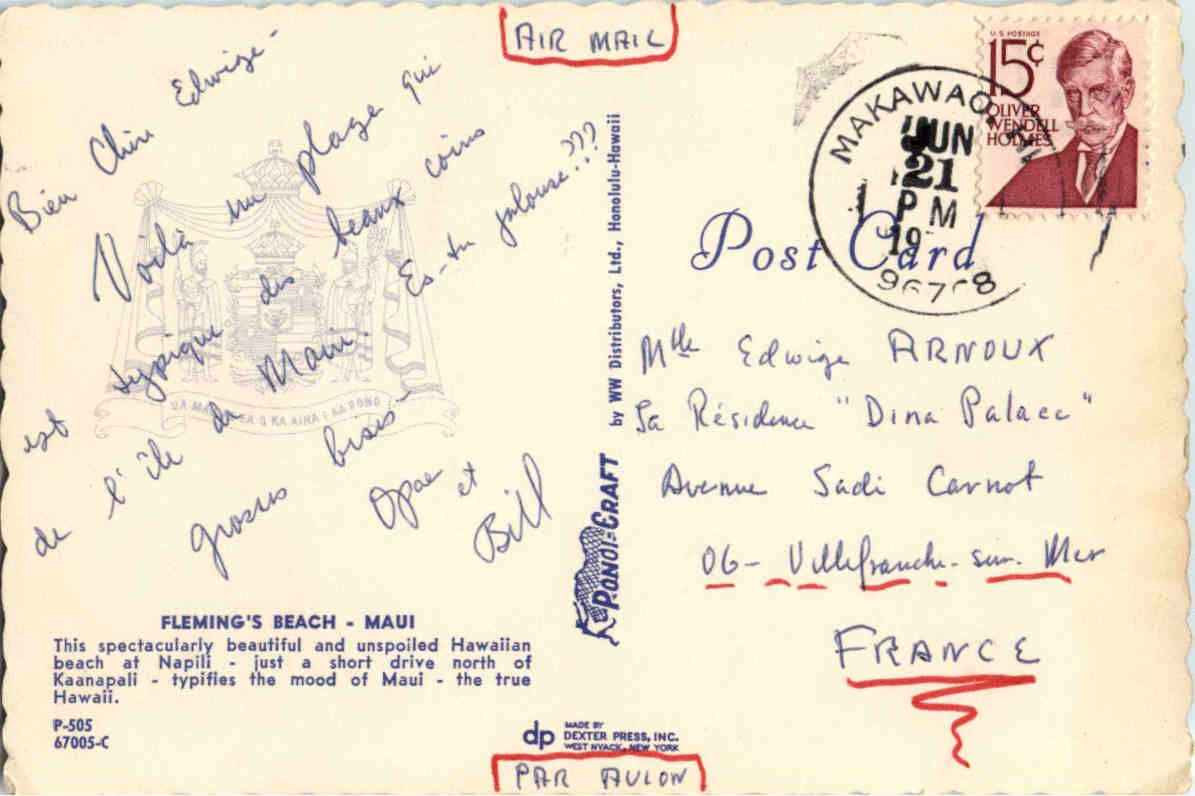 AIR MAIL
Bien Chère Edwige -
Voilà une plage qui
est typique des beaux coins
de l'île de Maui. Es-tu jalouse???
grosses bises -
Opae et
Bill
FLEMING'S BEACH - MAUI
This spectacularly beautiful and unspoiled Hawaiian
beach at Napili - just a short drive north of
Kaanapali - typifies the mood of Maui - the true
Hawaii.
P-505
67005-C
by WW Distributors, Ltd., Honolulu-Hawaii
dp
MADE BY
DEXTER PRESS, INC.
WEST NYACK, NEW YORK
PAR AVION
U.S. POSTAGE
15¢
OLIVER
WENDELL
HOLMES
MAKAWAO
JUN
21
PM
19
Post Card
Mlle Edwige ARNOUX
5a Résidence "Dina Palace"
Avenue Sadi Carnot
06- Villefranche-sur-Mer
FRANCE